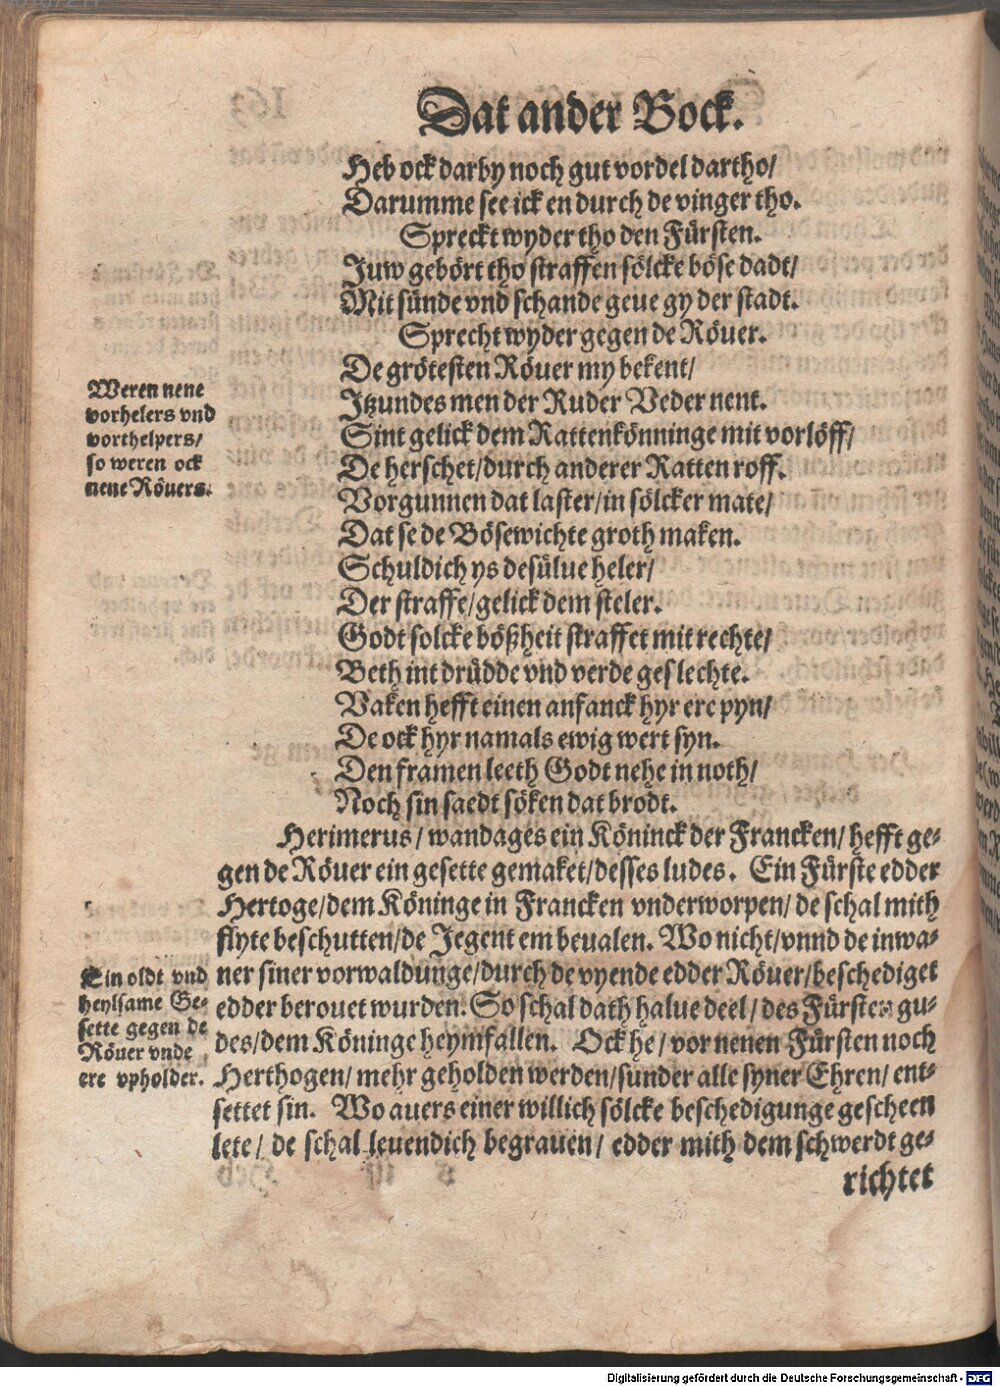 Dat ander Bock.
Heb ock darby noch gut vordel dartho/
Darumme see ick en durch de vinger tho.
Spreckt wyder tho den Fürsten.
Juw gebört tho straffen sölcke böse dadt/
Mit sünde vnd schande geue gy der stadt.
Sprecht wyder gegen de Röuer.
De grötesten Röuer my bekent/
Jtzundes men der Ruder Veder nent.
Sint gelick dem Rattenkönninge mit vorlöff/
De herschet/durch anderer Ratten roff.
Vorgunnen dat laster/in sölcker mate/
Dat se de Bösewichte groth maken.
Schuldich ys desülue heler/
Der straffe/gelick dem steler.
Godt solcke bößheit straffet mit rechte/
Beth int drüdde vnd verde geslechte.
Vaken hefft einen anfanck hyr ere pyn/
De ock hyr namals ewig wert syn.
Den framen leeth Godt nehe in noth/
Noch sin saedt söken dat brodt.
Weren nene
vorhelers vnd
vorthelpers/
so weren ock
nene Röuers.
Herimerus/ wandages ein Köninck der Francken/ hefft ge-
gen de Röuer ein gesette gemaket/desses ludes. Ein Fürste edder
Hertoge/dem Köninge in Francken vnderworpen/ de schal mith
flyte beschutten/de Jegent em beualen. Wo nicht/vnnd de inwa-
ner siner vorwaldunge/durch de vyende edder Röuer/beschediget
edder berouet wurden. So schal dath halue deel/ des Fürsten gu-
des/dem Köninge heymfallen. Ock he/ vor nenen Fürsten noch
Herthogen/ mehr geholden werden/sunder alle syner Ehren/ ent-
settet sin. Wo auers einer willich sölcke beschedigunge gescheen
lete/ de schal leuendich begrauen/ edder mith dem schwerdt ge-
richtet
Ein oldt vnd
heylsame Ge-
sette gegen de
Röuer vnde
ere vpholder.
Digitalisierung gefördert durch die Deutsche Forschungsgemeinschaft - DFG